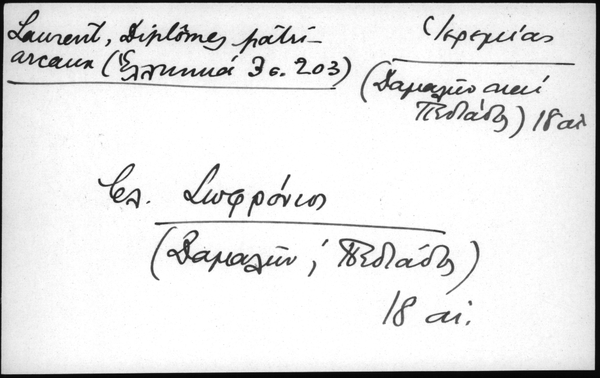 Laurent, Diplômes patri-
arcaux (Ἑλληνικά 3 σ. 203)
Ἱερεμίας
(Δαμαλῶν καὶ
Πεδιάδος) 18 αἰ
βλ. Σωφρόνιος
(Δαμαλῶν ἢ Πεδιάδος)
18 αἰ.